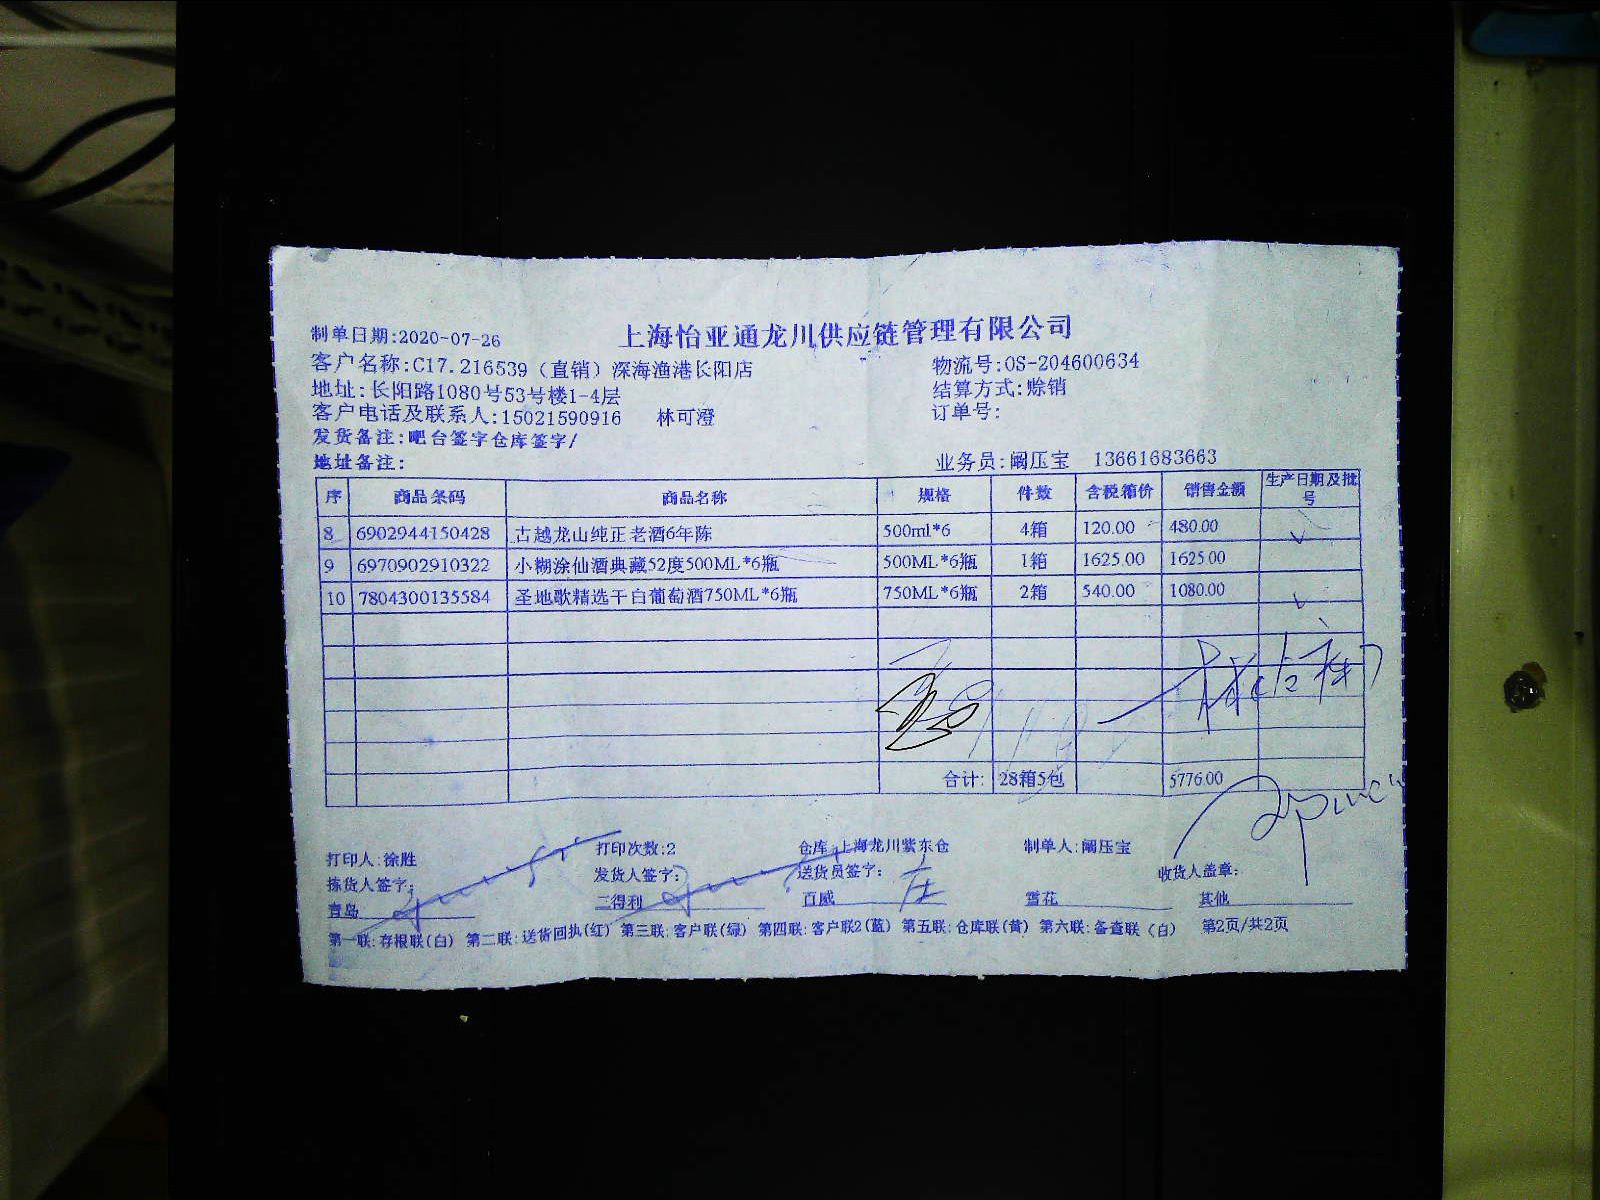 上海怡亚通龙川供应链管理有限公司
制单日期:2020-07-26
客户名称:C17.216539（直销）深海渔港长阳店 物流号:OS-204600634
地址:长阳路1080号53号楼1-4层 结算方式:赊销
客户电话及联系人:15021590916 林可澄 订单号:
发货备注:吧台签字仓库签字/
地址备注: 业务员:阚压宝 13661683663
序 商品条码 商品名称 规格 件数 含税箱价 销售金额 生产日期及批号
8 6902944150428 古越龙山纯正老酒6年陈 500ml*6 4箱 120.00 480.00
9 6970902910322 小糊涂仙酒典藏52度500ML*6瓶 500ML*6瓶 1箱 1625.00 1625.00
10 7804300135584 圣地歌精选干白葡萄酒750ML*6瓶 750ML*6瓶 2箱 540.00 1080.00
合计: 28箱5包 5776.00
打印人:徐胜 打印次数:2 仓库:上海龙川紫东仓 制单人:阚压宝
拣货人签字: 发货人签字: 送货员签字: 收货人盖章:
青岛 三得利 百威 雪花 其他
第一联:存根联(白) 第二联:送货回执(红) 第三联:客户联(绿) 第四联:客户联2(蓝) 第五联:仓库联(黄) 第六联:备查联(白) 第2页/共2页